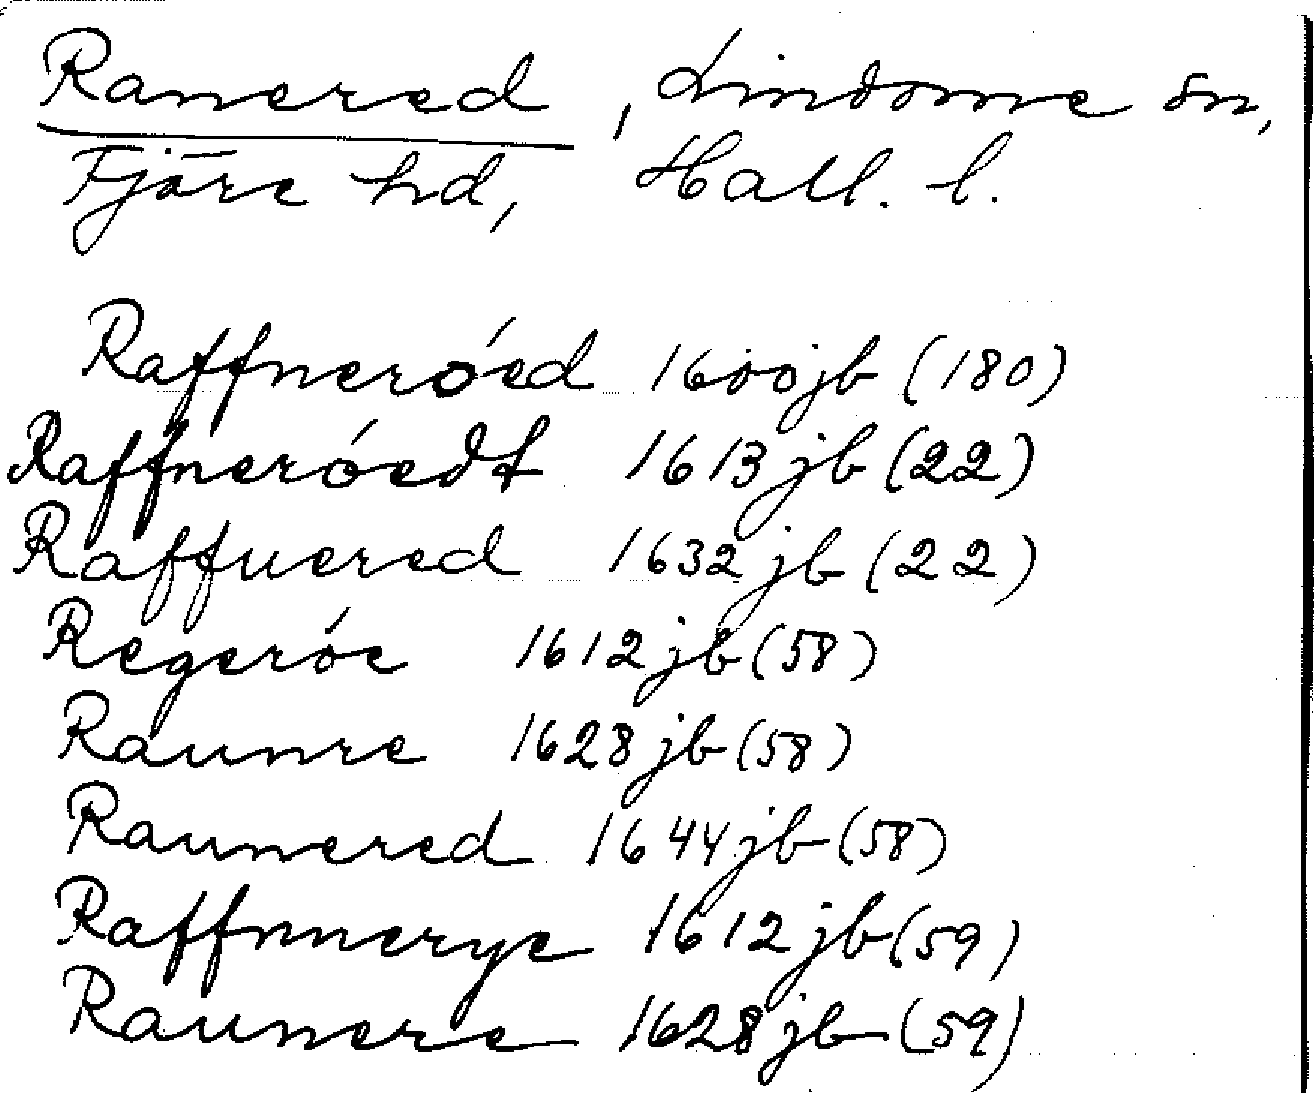 Ranered, Lindome sn,
Fjäre hd, Hall. l.
Raffneróed 1600jb (180)
Raffneróedt 1613jb (22)
Raffuered 1632jb (22)
Regeróe 1612jb (58)
Raunre 1628jb (58)
Raunered 1644jb (58)
Raffnnerye 1612jb (59)
Raunere 1628jb (59)